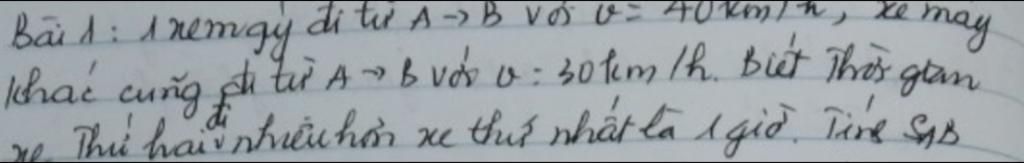 Bài 1: 1 xe máy đi từ A → B với v = 40 km/h, xe máy
khác cũng đi từ A → B với v = 30 km/h. Biết Thời gian
xe Thứ hai đi nhiều hơn xe thứ nhất là 1 giờ. Tính SAB